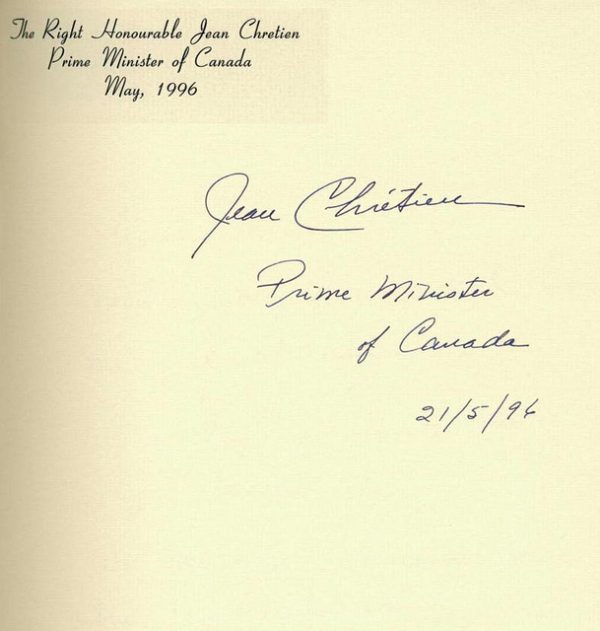 The Right Honourable Jean Chretien
Prime Minister of Canada
May, 1996
Jean Chrétien
Prime Minister
of Canada
21/5/96